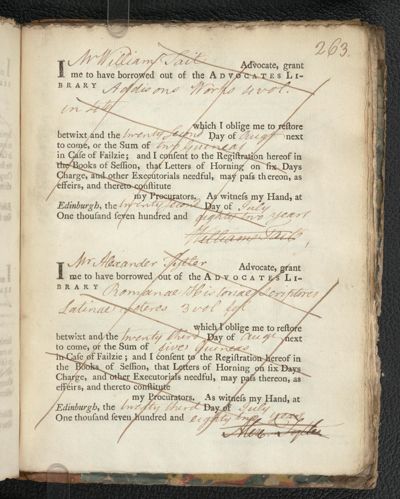 263.
I Mr William Tait Advocate, grant
me to have borrowed out of the ADVOCATES LI-
BRARY Addisons Works 4 vol.
in 4to
which I oblige me to restore
betwixt and the twenty second Day of Augt next
to come, or the Sum of two Guineas
in Case of Failzie; and I consent to the Registration hereof in
the Books of Session, that Letters of Horning on six Days
Charge, and other Executorials needful, may pass thereon, as
effeirs, and thereto constitute
my Procurators. As witness my Hand, at
Edinburgh, the twenty second Day of July
One thousand seven hundred and eighty two years
William Tait
I Mr Alexander Tytler Advocate, grant
me to have borrowed out of the ADVOCATES LI-
BRARY Romanae Historiae Scriptores
Latinae veteres 3 vol fol
which I oblige me to restore
betwixt and the twenty third Day of Augt next
to come, or the Sum of five Guineas
in Case of Failzie; and I consent to the Registration hereof in
the Books of Session, that Letters of Horning on six Days
Charge, and other Executorials needful, may pass thereon, as
effeirs, and thereto constitute
my Procurators. As witness my Hand, at
Edinburgh, the twenty third Day of July
One thousand seven hundred and eighty two years
Alexr Tytler